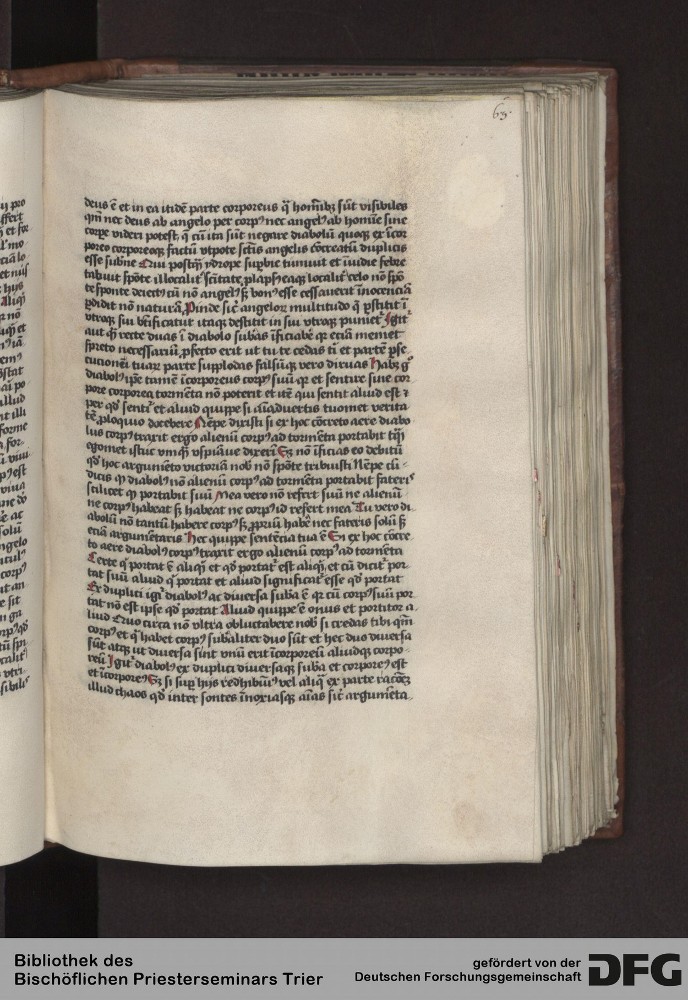 63.
deus ē et in ea itidē parte corporeus q̄ homībꝫ sūt visibiles
qm̄ nec deus ab angelo per corpꝰ nec angelꝰ ab homīe sine
corpe videri potest, q̄ cū ita sūt negare diabolū quoqꝫ ex īcor
poreo corporeoqꝫ factū vtpote sctīs angelis cōcreatū duplicis
esse subne Qui postqͣ ydrope supbie tumuit et īuidie febre
tabuit spōte illocalitꝰ scītate, plapsꝰ eaqꝫ localitꝰ celo nō spō
te sponte deiectꝰ cū nō angelꝰ sꝫ bonꝰ esse cessauerit īnocenciā
pdidit nō naturā, Pinde sicͭ angeloꝝ multitudo q̄ pstitit ī
vtraqꝫ sui btīficatur itaqꝫ destitit in sui vtraqꝫ punietͬ Igitͬ
aut q̄ recte duas ī diabolo subās īficiabē qͬ eciā memet
spreto necessariū, pfecto erit ut tu te cedas tī et partē pse
cucionē tuaꝝ parte supplodas falsūqꝫ vero diruas Habꝫ gͦ
diabolꝰ ipē tamē īcorporeus corpꝰ suū qͬ et sentire sine cor
pore corporea tormēta nō poterit et itē qui sentit aliud est ⁊
per qd̄ sentiͬ et aliud quippe si aīaduertis tuomet verita
tē, ploquio docebere Nēpe dixisti si ex hoc cōcreto aere diabo
lus corpꝰ traxit ergo alienū corpꝰ ad tormēta portabit tqͣ
egomet istuc vmqͣ vspiāue dixerī Sꝫ nō īficias eo debitū
qd̄ hoc argumēto victoriā nob nō spōte tribuisti Nēpe cū
dicis qͬ diabolꝰ nō alienū corpꝰ ad tormēta portabit faterīs
scilicet qͬ portabit suū Mea vero nō refert suū ne alienū
ne corpꝰ habeat sꝫ habeat ne corpꝰ id refert mea Tu vero di
abolū nō tantū habere corpꝰ sꝫ, ppriū habē nec fateris solū sꝫ
eciā argumētaris Hec quippe sentēcia tua ē Si ex hoc cōcre
to aere diabolꝰ corpꝰ traxit ergo alienū corpꝰ ad tormēta
Certe q̄ portat ē aliqͥ et qd̄ portatͬ est aliqͥ, et cū dicitͬ por
tat suū aliud q̄ portat et aliud significatͬ esse qd̄ portat
Ex duplici igͬ diabolꝰ ac diuersa suba ē qͬ cū corpꝰ suū por
tat nō est ipse qd̄ portat Aliud quippe ē onus et portitor a
liud Quo circa nō vltra obluctabere nob si credas tibi qm̄
corpꝰ et q̄ habet corpꝰ subaliter duo sūt et hec duo diuersa
sūt atqꝫ ut diuersa sint vnū erit īcorporeū aliudqꝫ corpo
reū Igitͬ diabolꝰ ex duplici diuersaqꝫ suba et corporeꝰ est
et īcorporeꝰ Sꝫ si sup hijs redhibūiͬ vel aliq̄ ex parte racōeꝫ
illud chaos qd̄ inter sontes īnoxiasqꝫ aīas sicͭ argumēta
Bibliothek des
Bischöflichen Priesterseminars Trier
gefördert von der
Deutschen Forschungsgemeinschaft
DFG